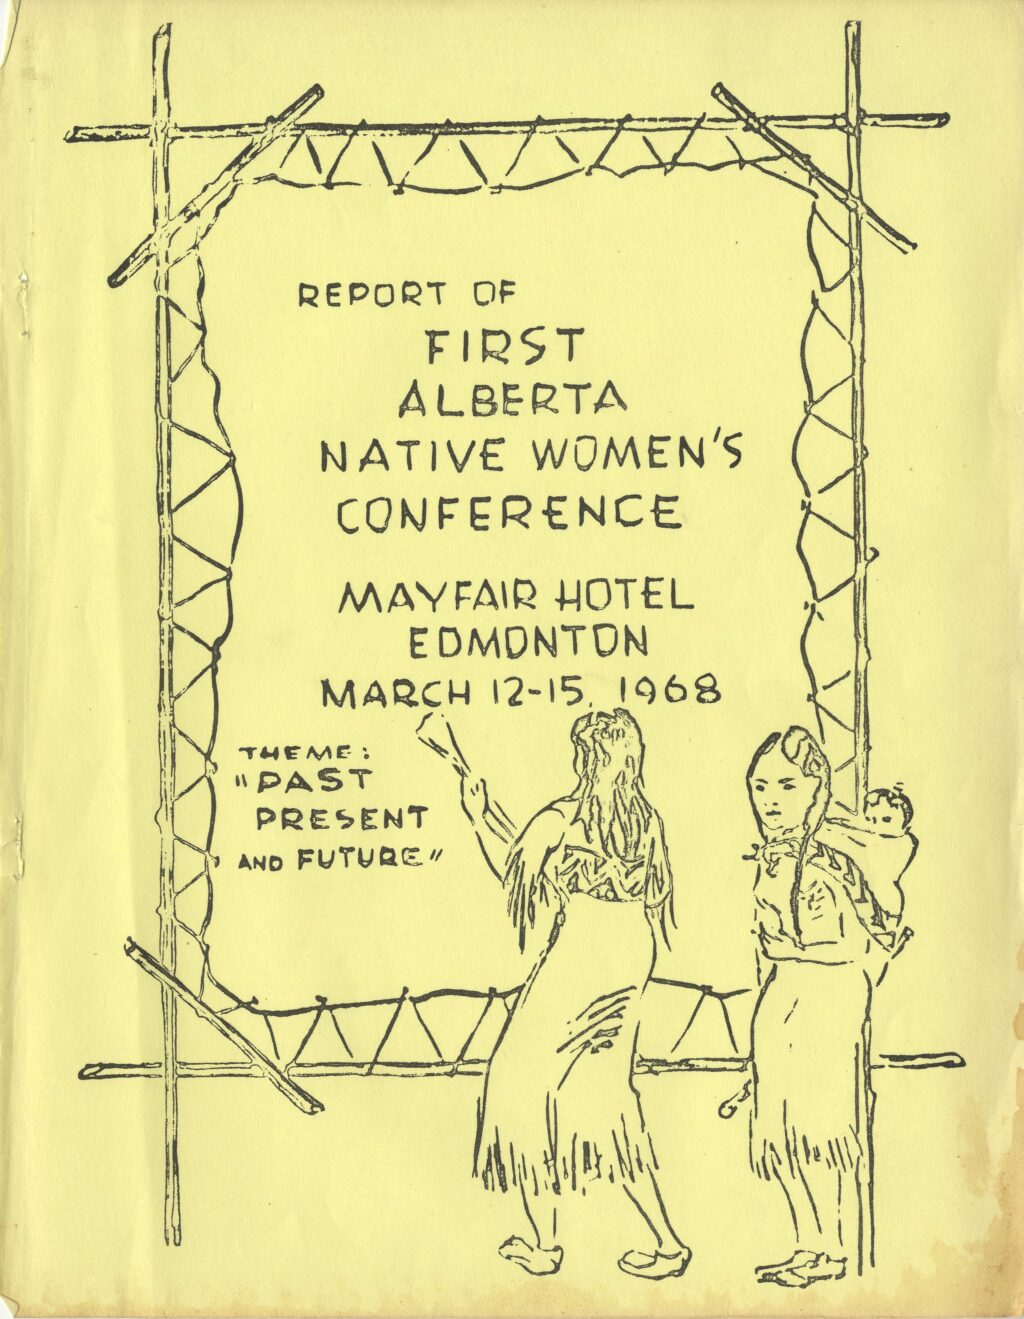 REPORT OF
FIRST
ALBERTA
NATIVE WOMEN'S
CONFERENCE
MAYFAIR HOTEL
EDMONTON
MARCH 12-15, 1968
THEME:
"PAST
PRESENT
AND FUTURE"